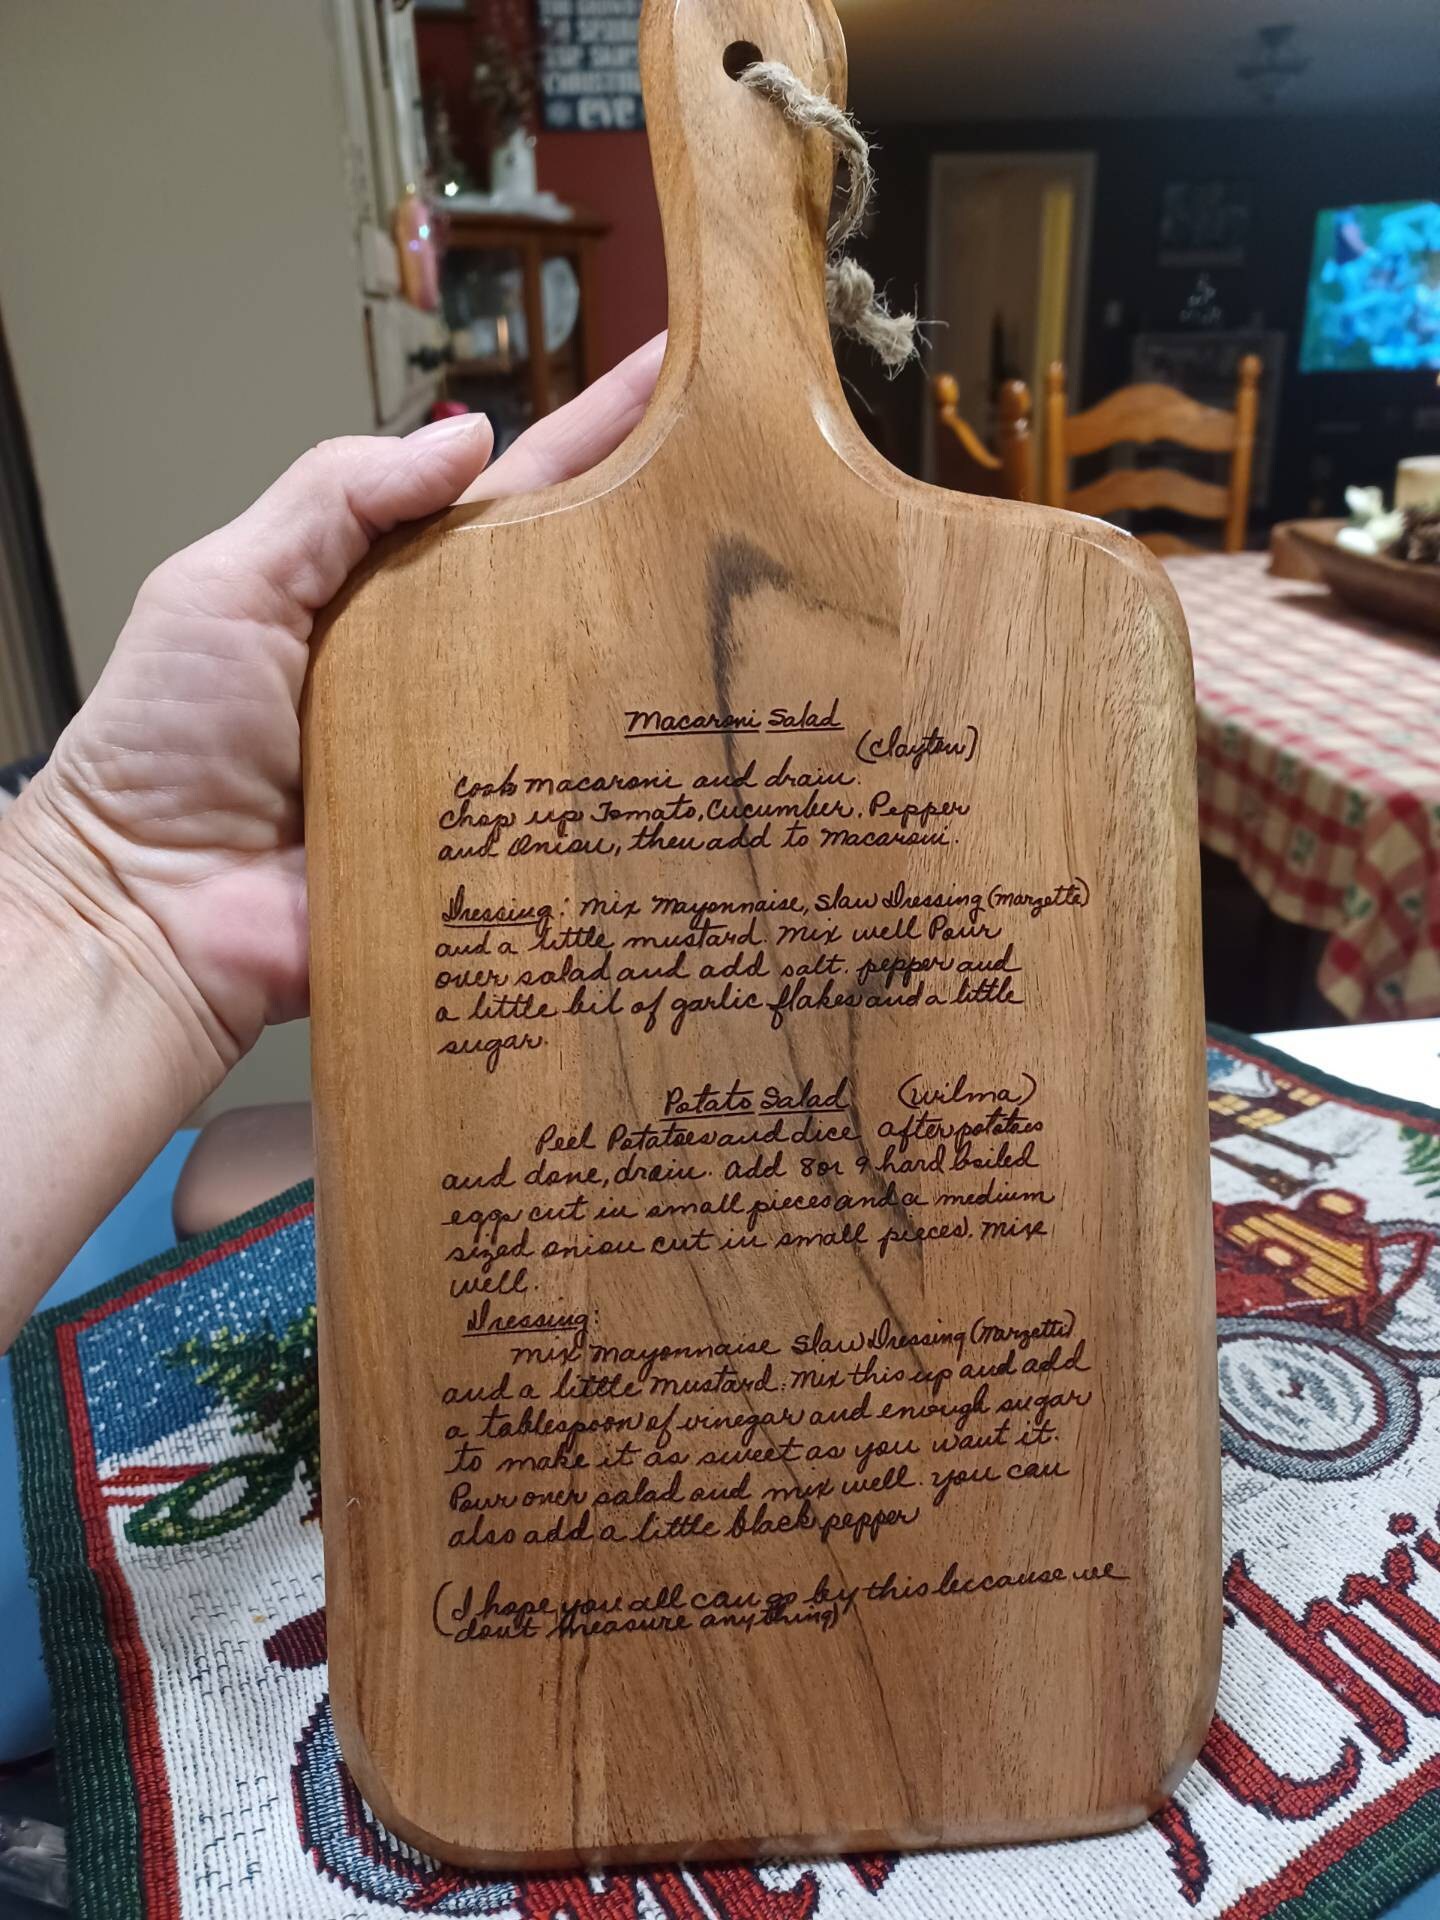 THE GROUND
CHRISTMAS
EVE
Macaroni Salad
(Clayton)
Cook macaroni and drain.
Chop up Tomato, Cucumber, Pepper
and Onion, then add to Macaroni.
Dressing: Mix Mayonnaise, Slaw Dressing (Marzette)
and a little mustard. Mix well Pour
over salad and add salt. pepper and
a little bit of garlic flakes and a little
sugar.
Potato Salad (Wilma)
Peel Potatoes and dice after potatoes
and done, drain. Add 8 or 9 hard boiled
eggs cut in small pieces and a medium
sized onion cut in small pieces. Mix
well.
Dressing:
Mix Mayonnaise Slaw Dressing (Marzetti)
and a little Mustard. Mix this up and add
a tablespoon of vinegar and enough sugar
to make it as sweet as you want it.
Pour over salad and mix well. You can
also add a little black pepper
(I hope you all can go by this beccause we
don't measure anything)